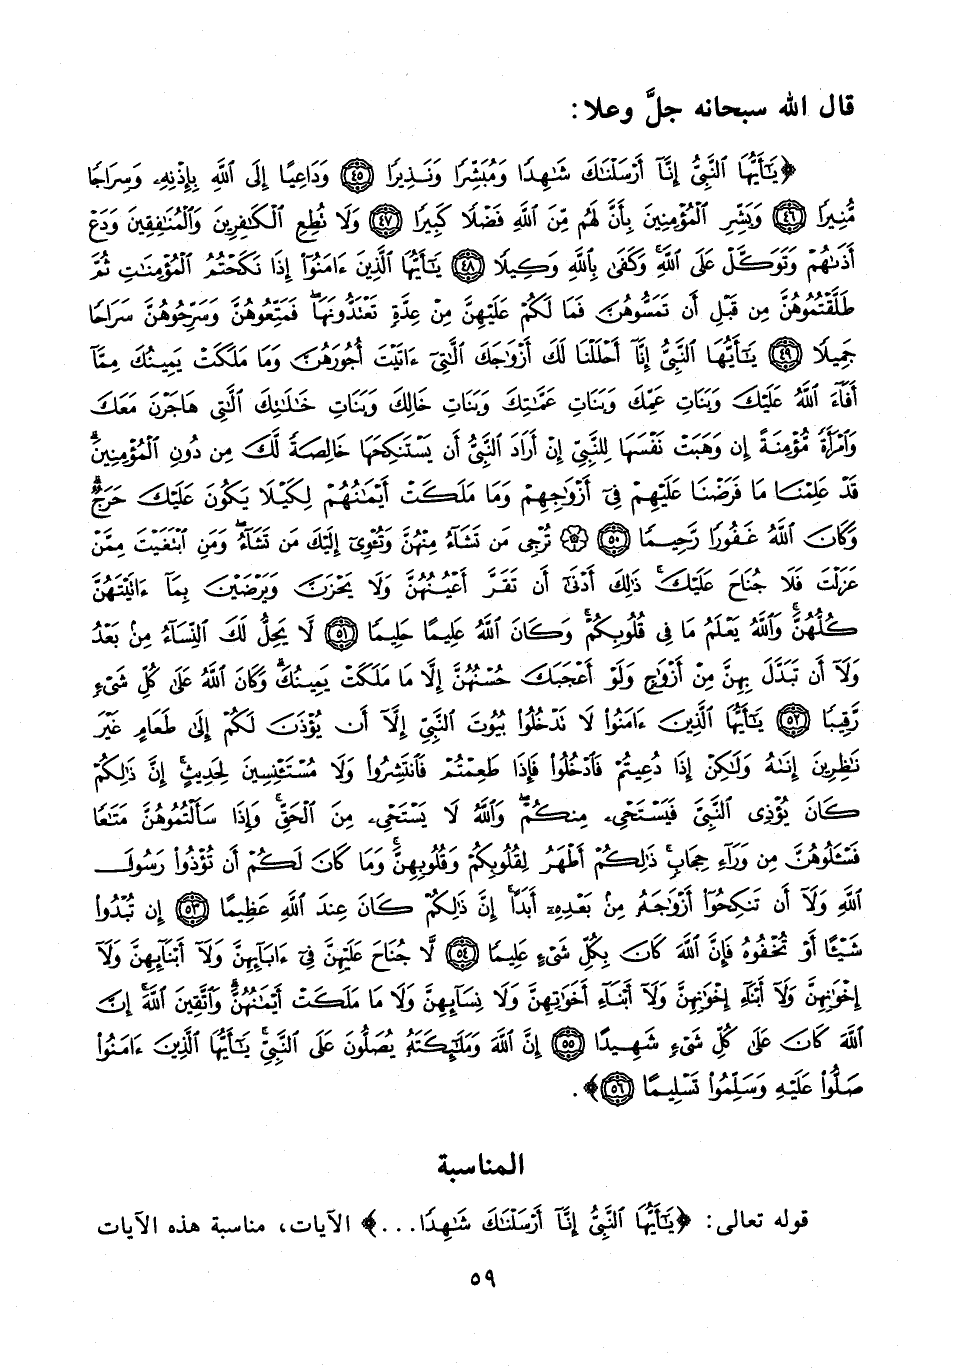 قال الله سبحانه جلَّ وعلا:
﴿يَٰٓأَيُّهَا ٱلنَّبِيُّ إِنَّآ أَرْسَلْنَٰكَ شَٰهِدًا وَمُبَشِّرًا وَنَذِيرًا ﴿٤٥﴾ وَدَاعِيًا إِلَى ٱللَّهِ بِإِذْنِهِۦ وَسِرَاجًا
مُّنِيرًا ﴿٤٦﴾ وَبَشِّرِ ٱلْمُؤْمِنِينَ بِأَنَّ لَهُم مِّنَ ٱللَّهِ فَضْلًا كَبِيرًا ﴿٤٧﴾ وَلَا تُطِعِ ٱلْكَٰفِرِينَ وَٱلْمُنَٰفِقِينَ وَدَعْ
أَذَىٰهُمْ وَتَوَكَّلْ عَلَى ٱللَّهِ ۚ وَكَفَىٰ بِٱللَّهِ وَكِيلًا ﴿٤٨﴾ يَٰٓأَيُّهَا ٱلَّذِينَ ءَامَنُوٓا۟ إِذَا نَكَحْتُمُ ٱلْمُؤْمِنَٰتِ ثُمَّ
طَلَّقْتُمُوهُنَّ مِن قَبْلِ أَن تَمَسُّوهُنَّ فَمَا لَكُمْ عَلَيْهِنَّ مِنْ عِدَّةٍ تَعْتَدُّونَهَا ۖ فَمَتِّعُوهُنَّ وَسَرِّحُوهُنَّ سَرَاحًا
جَمِيلًا ﴿٤٩﴾ يَٰٓأَيُّهَا ٱلنَّبِيُّ إِنَّآ أَحْلَلْنَا لَكَ أَزْوَٰجَكَ ٱلَّٰتِىٓ ءَاتَيْتَ أُجُورَهُنَّ وَمَا مَلَكَتْ يَمِينُكَ مِمَّآ
أَفَآءَ ٱللَّهُ عَلَيْكَ وَبَنَاتِ عَمِّكَ وَبَنَاتِ عَمَّٰتِكَ وَبَنَاتِ خَالِكَ وَبَنَاتِ خَٰلَٰتِكَ ٱلَّٰتِى هَاجَرْنَ مَعَكَ
وَٱمْرَأَةً مُّؤْمِنَةً إِن وَهَبَتْ نَفْسَهَا لِلنَّبِيِّ إِنْ أَرَادَ ٱلنَّبِيُّ أَن يَسْتَنكِحَهَا خَالِصَةً لَّكَ مِن دُونِ ٱلْمُؤْمِنِينَ ۗ
قَدْ عَلِمْنَا مَا فَرَضْنَا عَلَيْهِمْ فِىٓ أَزْوَٰجِهِمْ وَمَا مَلَكَتْ أَيْمَٰنُهُمْ لِكَيْلَا يَكُونَ عَلَيْكَ حَرَجٌ ۗ
وَكَانَ ٱللَّهُ غَفُورًا رَّحِيمًا ﴿٥٠﴾ ۞ تُرْجِى مَن تَشَآءُ مِنْهُنَّ وَتُـْٔوِىٓ إِلَيْكَ مَن تَشَآءُ ۖ وَمَنِ ٱبْتَغَيْتَ مِمَّنْ
عَزَلْتَ فَلَا جُنَاحَ عَلَيْكَ ۚ ذَٰلِكَ أَدْنَىٰٓ أَن تَقَرَّ أَعْيُنُهُنَّ وَلَا يَحْزَنَّ وَيَرْضَيْنَ بِمَآ ءَاتَيْتَهُنَّ
كُلُّهُنَّ ۚ وَٱللَّهُ يَعْلَمُ مَا فِى قُلُوبِكُمْ ۚ وَكَانَ ٱللَّهُ عَلِيمًا حَلِيمًا ﴿٥١﴾ لَّا يَحِلُّ لَكَ ٱلنِّسَآءُ مِنۢ بَعْدُ
وَلَآ أَن تَبَدَّلَ بِهِنَّ مِنْ أَزْوَٰجٍ وَلَوْ أَعْجَبَكَ حُسْنُهُنَّ إِلَّا مَا مَلَكَتْ يَمِينُكَ ۗ وَكَانَ ٱللَّهُ عَلَىٰ كُلِّ شَىْءٍ
رَّقِيبًا ﴿٥٢﴾ يَٰٓأَيُّهَا ٱلَّذِينَ ءَامَنُوا۟ لَا تَدْخُلُوا۟ بُيُوتَ ٱلنَّبِيِّ إِلَّآ أَن يُؤْذَنَ لَكُمْ إِلَىٰ طَعَامٍ غَيْرَ
نَٰظِرِينَ إِنَىٰهُ وَلَٰكِنْ إِذَا دُعِيتُمْ فَٱدْخُلُوا۟ فَإِذَا طَعِمْتُمْ فَٱنتَشِرُوا۟ وَلَا مُسْتَـْٔنِسِينَ لِحَدِيثٍ ۚ إِنَّ ذَٰلِكُمْ
كَانَ يُؤْذِى ٱلنَّبِيَّ فَيَسْتَحْىِۦ مِنكُمْ ۖ وَٱللَّهُ لَا يَسْتَحْىِۦ مِنَ ٱلْحَقِّ ۚ وَإِذَا سَأَلْتُمُوهُنَّ مَتَٰعًا
فَسْـَٔلُوهُنَّ مِن وَرَآءِ حِجَابٍ ۚ ذَٰلِكُمْ أَطْهَرُ لِقُلُوبِكُمْ وَقُلُوبِهِنَّ ۚ وَمَا كَانَ لَكُمْ أَن تُؤْذُوا۟ رَسُولَ
ٱللَّهِ وَلَآ أَن تَنكِحُوٓا۟ أَزْوَٰجَهُۥ مِنۢ بَعْدِهِۦٓ أَبَدًا ۚ إِنَّ ذَٰلِكُمْ كَانَ عِندَ ٱللَّهِ عَظِيمًا ﴿٥٣﴾ إِن تُبْدُوا۟
شَيْـًٔا أَوْ تُخْفُوهُ فَإِنَّ ٱللَّهَ كَانَ بِكُلِّ شَىْءٍ عَلِيمًا ﴿٥٤﴾ لَّا جُنَاحَ عَلَيْهِنَّ فِىٓ ءَابَآئِهِنَّ وَلَآ أَبْنَآئِهِنَّ وَلَآ
إِخْوَٰنِهِنَّ وَلَآ أَبْنَآءِ إِخْوَٰنِهِنَّ وَلَآ أَبْنَآءِ أَخَوَٰتِهِنَّ وَلَا نِسَآئِهِنَّ وَلَا مَا مَلَكَتْ أَيْمَٰنُهُنَّ ۗ وَٱتَّقِينَ ٱللَّهَ ۚ إِنَّ
ٱللَّهَ كَانَ عَلَىٰ كُلِّ شَىْءٍ شَهِيدًا ﴿٥٥﴾ إِنَّ ٱللَّهَ وَمَلَٰٓئِكَتَهُۥ يُصَلُّونَ عَلَى ٱلنَّبِيِّ ۚ يَٰٓأَيُّهَا ٱلَّذِينَ ءَامَنُوا۟
صَلُّوا۟ عَلَيْهِ وَسَلِّمُوا۟ تَسْلِيمًا ﴿٥٦﴾﴾.
المناسبة
قوله تعالى: ﴿يَٰٓأَيُّهَا ٱلنَّبِيُّ إِنَّآ أَرْسَلْنَٰكَ شَٰهِدًا...﴾ الآيات، مناسبة هذه الآيات
٥٩